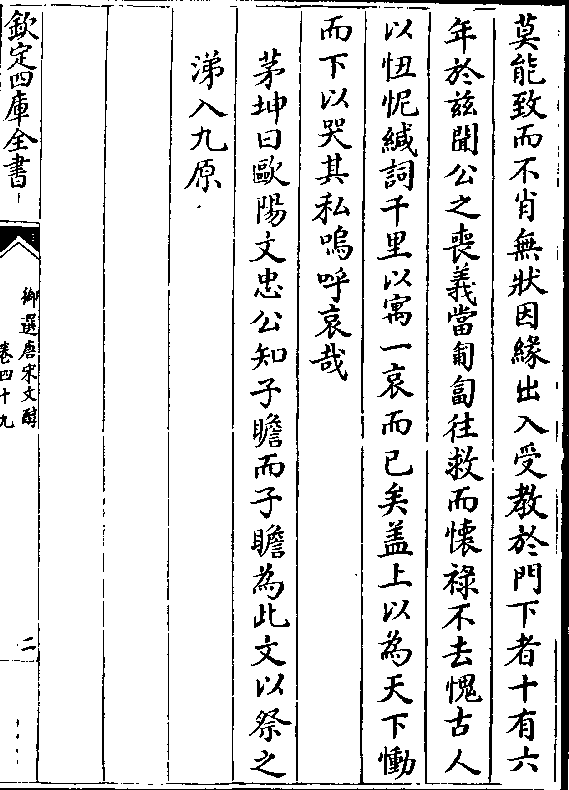 莫能致而不肖無狀因緣出入受教於門下者十有六
年於兹聞公之喪義當匍匐往救而懷祿不去愧古人
以忸怩緘詞千里以寓一哀而已矣盖上以為天下慟
而下以哭其私嗚呼哀哉
茅坤曰歐陽文忠公知子瞻而子瞻為此文以祭之
涕入九原
欽定四庫全書
御選唐宋文醇
卷四十九
二